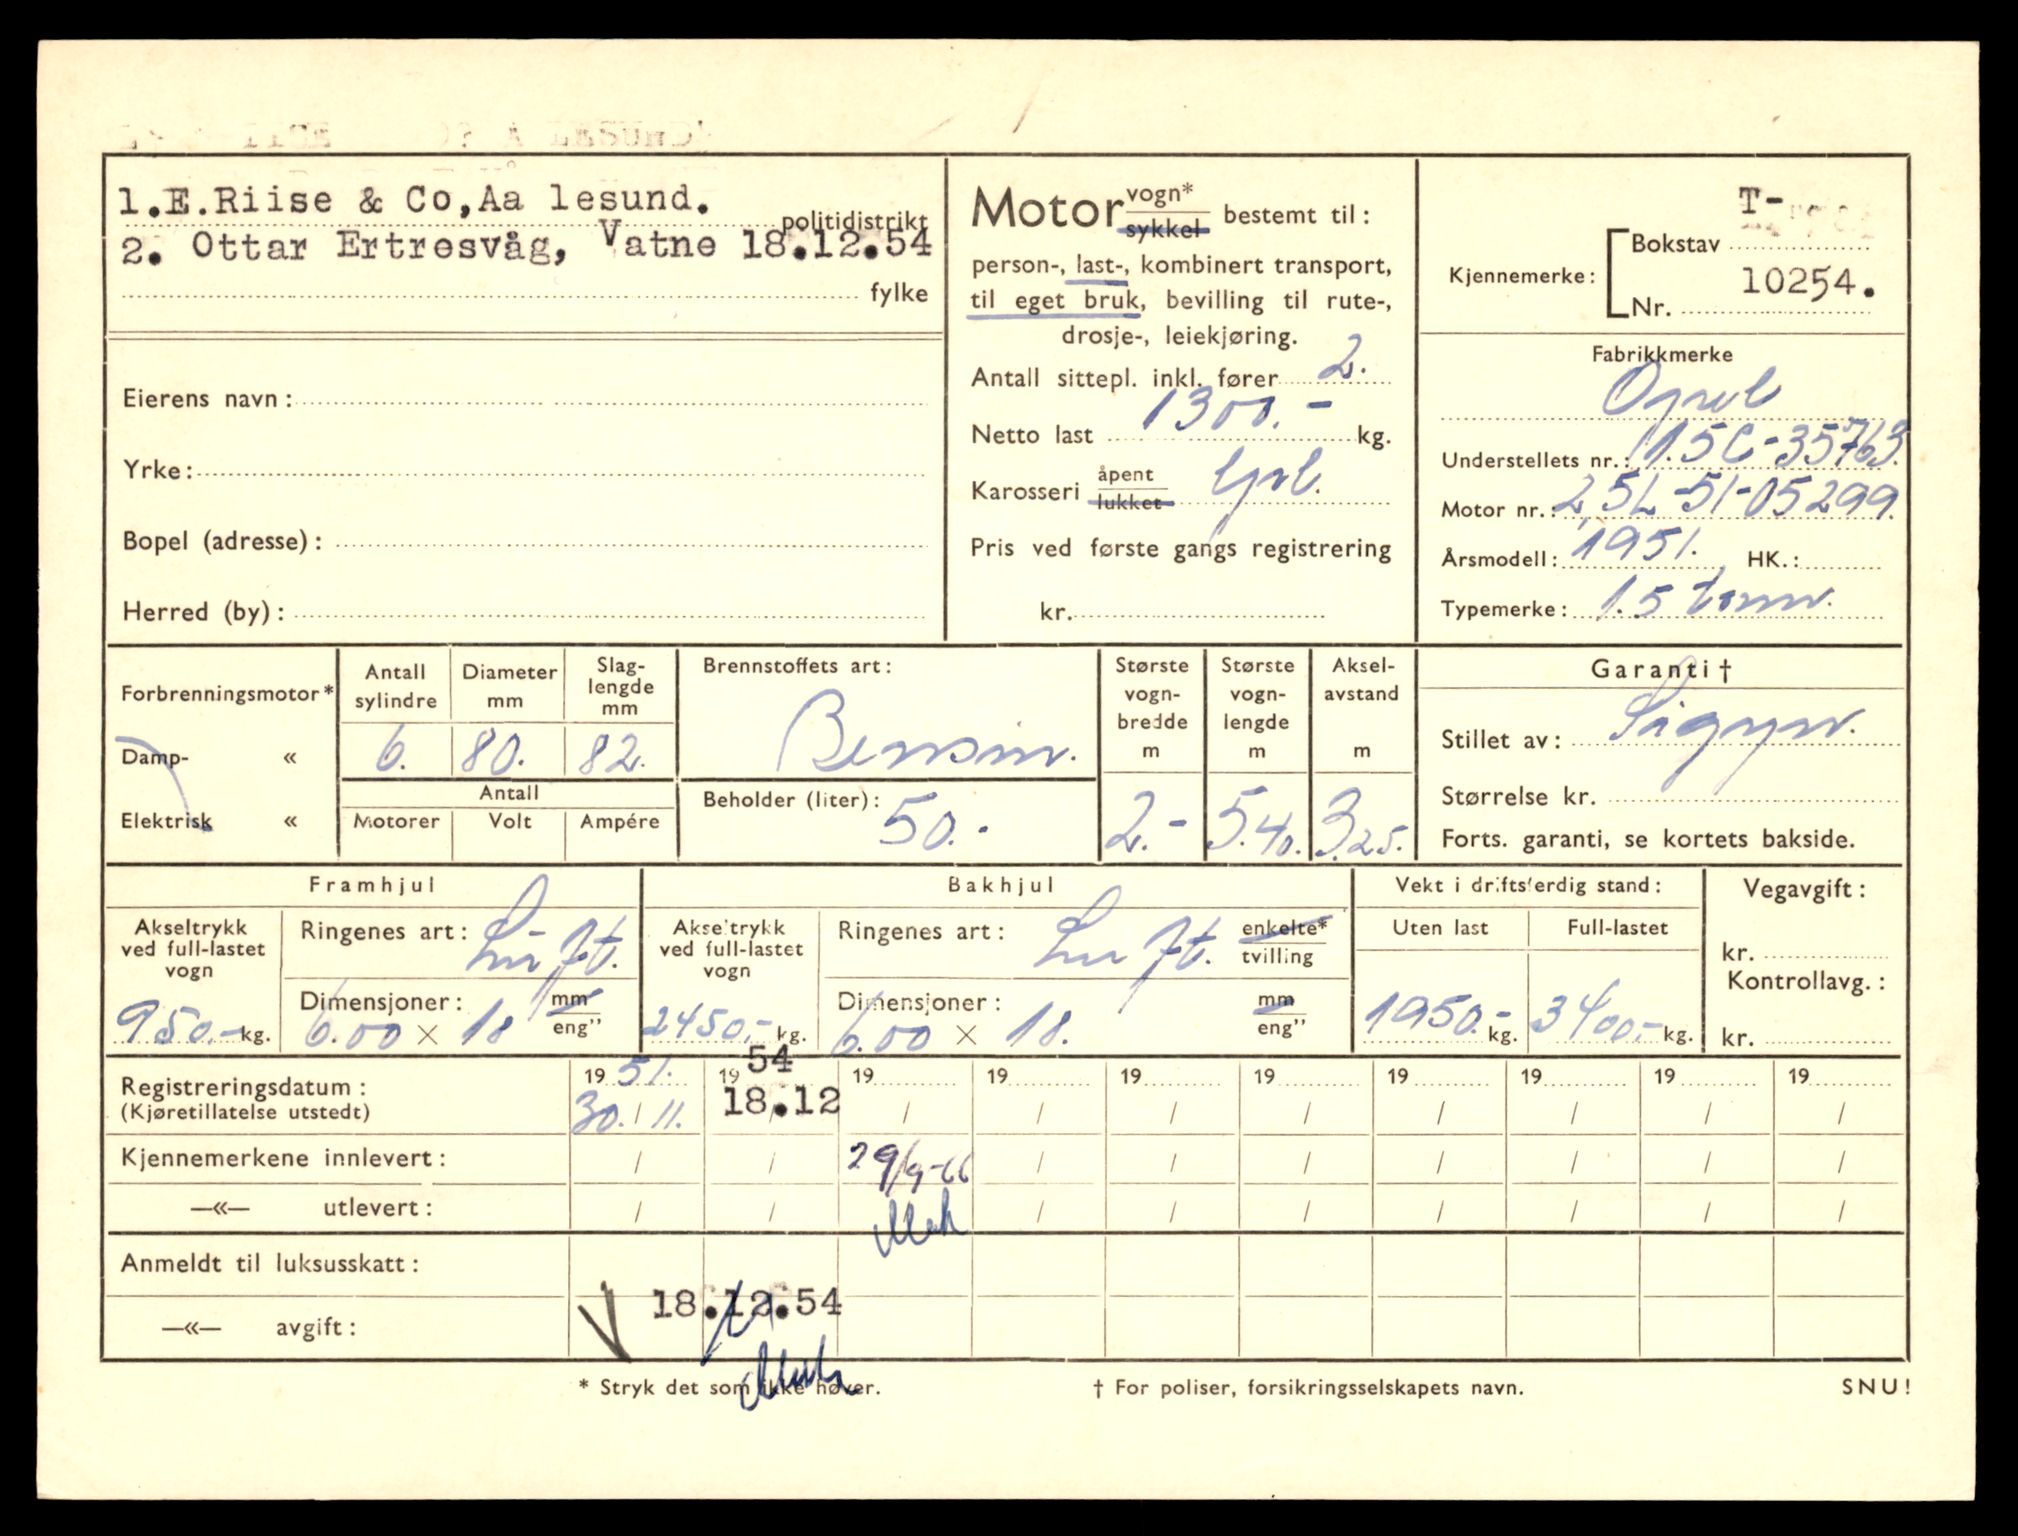 1.E.Riise & Co,Aa lesund.
politidistrikt
2. Ottar Ertresvåg, Vatne 18.12.54
fylke
Eierens navn:
Yrke:
Bopel (adresse):
Herred (by):
Motor vogn* sykkel bestemt til:
person-, last-, kombinert transport,
til eget bruk, bevilling til rute-,
drosje-, leiekjøring.
Antall sittepl. inkl. fører 2.
Netto last 1300.- kg.
Karosseri åpent lukket
Pris ved første gangs registrering
kr.
T-
Kjennemerke: Bokstav
10254.
Nr.
Fabrikkmerke
Opel
Understellets nr.: 1.5C-35763.
Motor nr.: 2,5L-51-05299.
Årsmodell: 1951. HK.:
Typemerke: 1.5 tonn.
Forbrenningsmotor*
Damp- «
Elektrisk «
Antall sylindre 6.
Diameter mm 80.
Slag-
lengde
mm 82.
Antall
Motorer Volt Ampére
Brennstoffets art:
Bensin.
Beholder (liter): 50.-
Største
vogn-
bredde
m
2.-
Største
vogn-
lengde
m
5.40.
Aksel-
avstand
m
3.25.
Garanti †
Stillet av: Sigyn.
Størrelse kr.
Forts. garanti, se kortets bakside.
Framhjul
Akseltrykk
ved full-lastet
vogn
950.- kg.
Ringenes art: Luft.
Dimensjoner: mm
6.00 × 18 eng"
Bakhjul
Akseltrykk
ved full-lastet
vogn
2450.- kg.
Ringenes art: Luft. enkelte* tvilling
Dimensjoner: mm
6.00 × 18. eng"
Vekt i driftsferdig stand:
Uten last Full-lastet
1950.- kg. 3400.- kg.
Vegavgift:
kr.
Kontrollavg.:
kr.
Registreringsdatum: 19 51. 19 54 19 19 19 19 19 19 19 19
(Kjøretillatelse utstedt) 30./11. 18.12 / / / / / / / /
Kjennemerkene innlevert: / / 29/9-66 / / / / / / /
—«— utlevert: / / / / / / / / /
Anmeldt til luksusskatt:
18.12.54
—«— avgift:
* Stryk det som ikke høver.
† For poliser, forsikringsselskapets navn.
SNU!